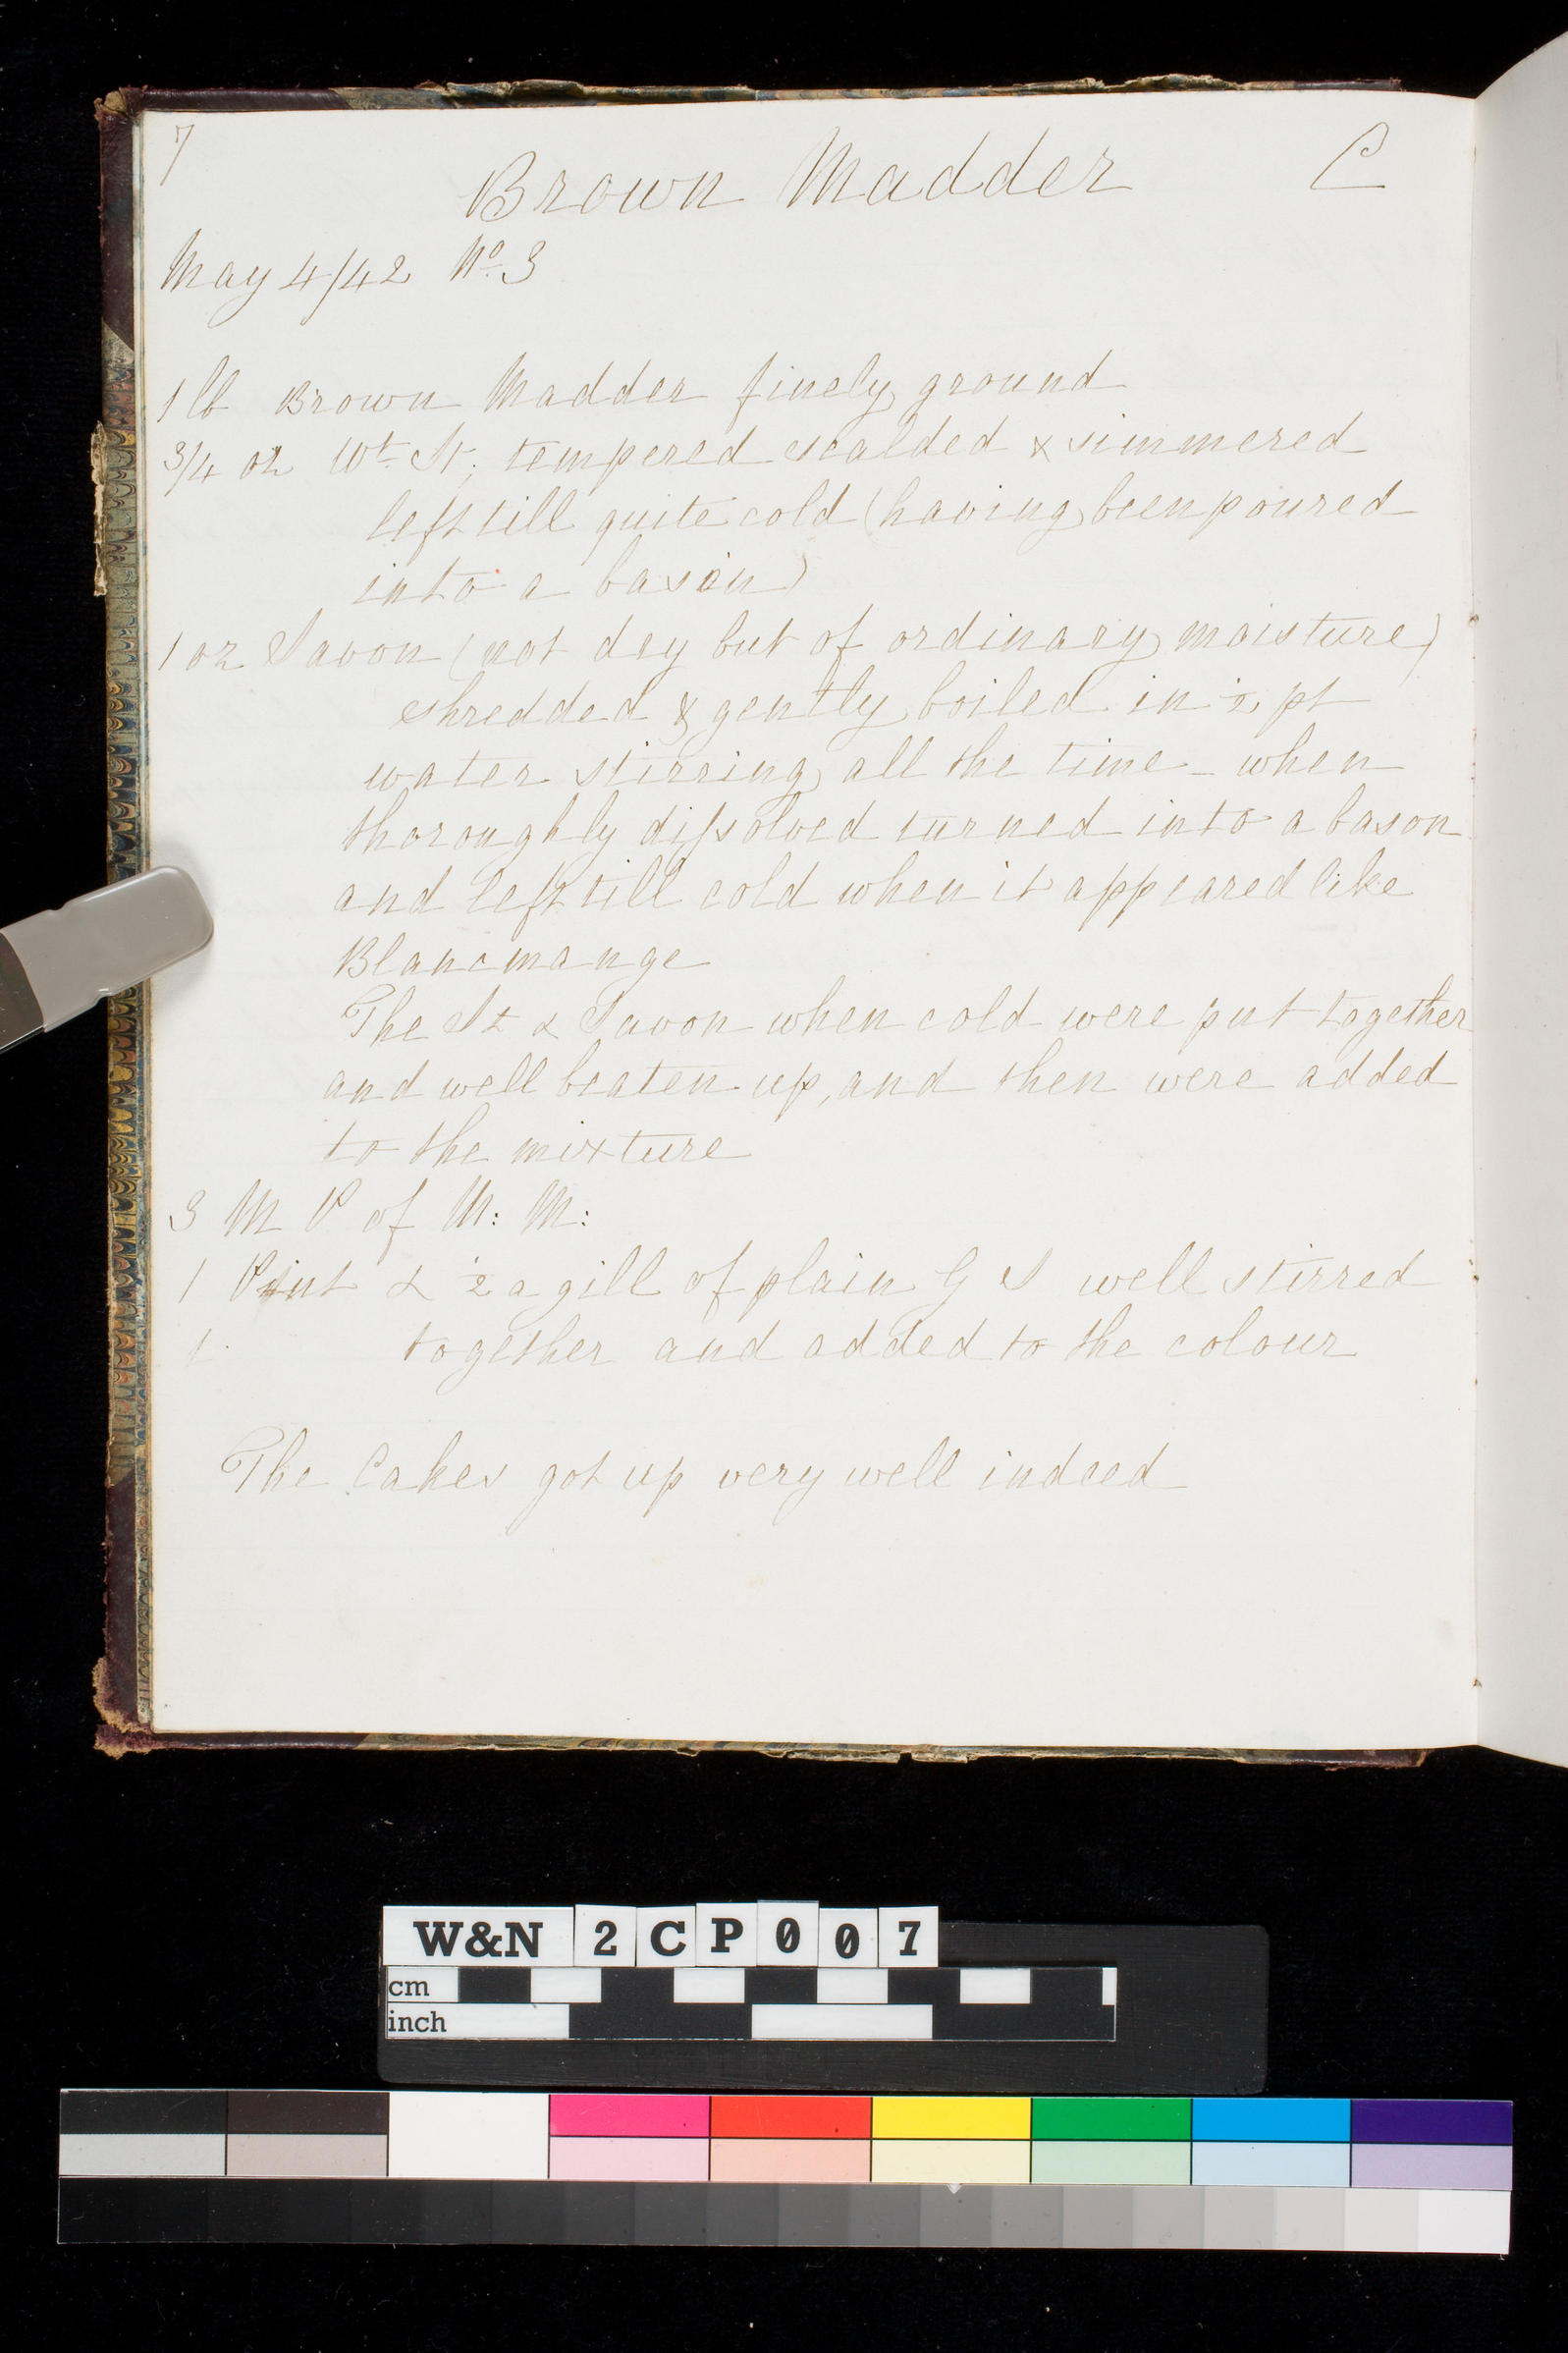 7
Brown Madder C
May 4/42 No. 3
1 lb Brown Madder finely ground
3/4 oz Wt. St; tempered scalded & simmered
left till quite cold (having been poured
into a basin)
1 oz Savon (not dry but of ordinary moisture)
shredded & gently boiled in ½ pt
water stirring all the time - when
thoroughly dissolved turned into a bason
and left till cold when it appeared like
Blancmange
The St & Savon when cold were put together
and well beaten up, and then were added
to the mixture
3 M P of M: M:
1 Pint & ½ a gill of plain G S well stirred
1 together and added to the colour
The Cakes got up very well indeed
W&N 2CP007
cm
inch